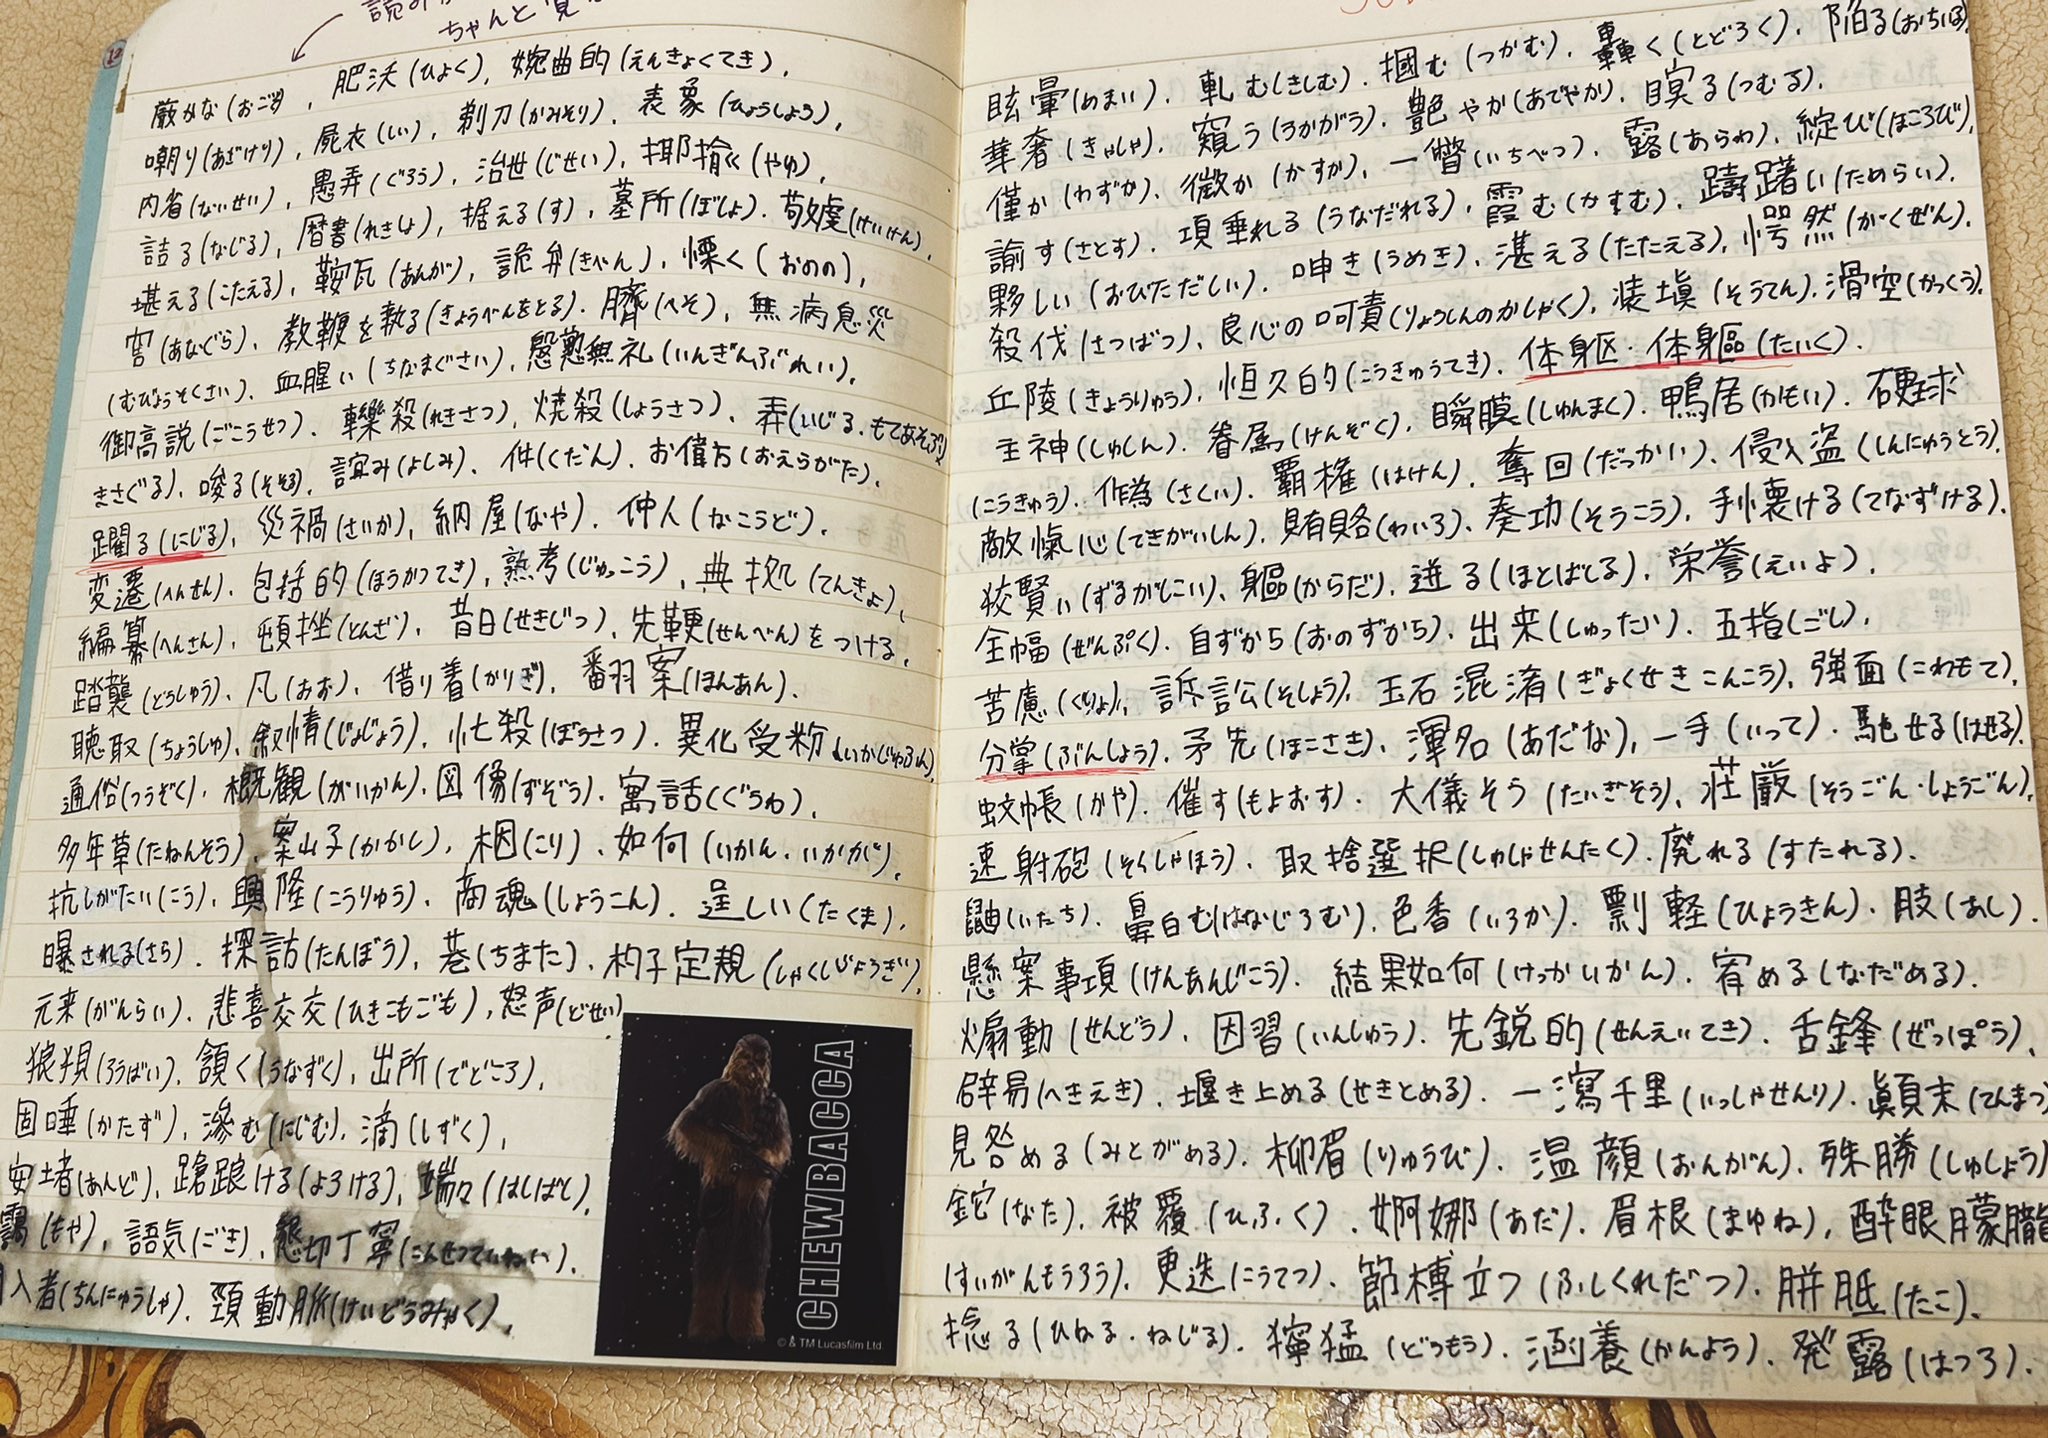 ちゃんと
厳かな(おごそ)、肥沃(ひよく)、婉曲的(えんきょくてき)、
嘲り(あざけり)、屍衣(しい)、剃刀(かみそり)、表象(ひょうしょう)、
内省(ないせい)、愚弄(ぐろう)、治世(じせい)、揶揄(やゆ)、
詰る(なじる)、暦書(れきしょ)、据える(す)、墓所(ぼしょ)、敬虔(けいけん)、
堪える(こたえる)、鞍瓦(あんが)、詭弁(きべん)、慄く(おのの)、
窖(あなぐら)、教鞭を執る(きょうべんをとる)、臍(へそ)、無病息災
(むびょうそくさい)、血腥い(ちなまぐさい)、慇懃無礼(いんぎんぶれい)、
御高説(ごこうせつ)、轢殺(れきさつ)、焼殺(しょうさつ)、弄(いじる・もてあそぶ
まさぐる)、唆る(そそる)、誼み(よしみ)、件(くだん)、お偉方(おえらがた)、
躙る(にじる)、災禍(さいか)、納屋(なや)、仲人(なこうど)、
変遷(へんせん)、包括的(ほうかつてき)、熟考(じゅっこう)、典拠(てんきょ)、
編纂(へんさん)、頓挫(とんざ)、昔日(せきじつ)、先鞭(せんべん)をつける、
踏襲(とうしゅう)、凡(およ)、借り着(かりぎ)、翻案(ほんあん)、
聴取(ちょうしゅ)、叙情(じょじょう)、忙殺(ぼうさつ)、異化受粉(いかじゅふん)、
通俗(つうぞく)、概観(がいかん)、図像(ずぞう)、寓話(ぐうわ)、
多年草(たねんそう)、案山子(かかし)、梱(こり)、如何(いかん・いかが)、
抗しがたい(こう)、興隆(こうりゅう)、商魂(しょうこん)、逞しい(たくま)、
曝される(さら)、探訪(たんぼう)、巷(ちまた)、杓子定規(しゃくしじょうぎ)、
元来(がんらい)、悲喜交交(ひきこもごも)、怒声(どせい)
狼狽(ろうばい)、頷く(うなずく)、出所(でどころ)、
固唾(かたず)、滲む(にじむ)、滴(しずく)、
安堵(あんど)、蹌踉ける(よろける)、端々(はしばし)、
靄(もや)、語気(ごき)、懇切丁寧(こんせつていねい)、
入者(ちんにゅうしゃ)、頸動脈(けいどうみゃく)、
CHEWBACCA
© & TM Lucasfilm Ltd.
眩暈(めまい)、軋む(きしむ)、掴む(つかむ)、轟く(とどろく)、陥る(おちい
華奢(きゃしゃ)、窺う(うかがう)、艶やか(あでやか)、瞑る(つむる)、
僅か(わずか)、微か(かすか)、一瞥(いちべつ)、露(あらわ)、綻び(ほころび)、
諭す(さとす)、項垂れる(うなだれる)、霞む(かすむ)、躊躇い(ためらい)、
夥しい(おびただしい)、呻き(うめき)、湛える(たたえる)、愕然(がくぜん)、
殺伐(さつばつ)、良心の呵責(りょうしんのかしゃく)、装填(そうてん)、滑空(かっくう)、
丘陵(きゅうりょう)、恒久的(こうきゅうてき)、体躯・体軀(たいく)、
主神(しゅしん)、眷属(けんぞく)、瞬膜(しゅんまく)、鴨居(かもい)、硬球
(こうきゅう)、作為(さくい)、覇権(はけん)、奪回(だっかい)、侵入盗(しんにゅうとう)、
敵愾心(てきがいしん)、賄賂(わいろ)、奏功(そうこう)、手懐ける(てなずける)、
狡賢い(ずるがしこい)、軀(からだ)、迸る(ほとばしる)、栄誉(えいよ)、
全幅(ぜんぷく)、自ずから(おのずから)、出来(しゅったい)、五指(ごし)、
苦慮(くりょ)、訴訟(そしょう)、玉石混淆(ぎょくせきこんこう)、強面(こわもて)、
分掌(ぶんしょう)、矛先(ほこさき)、渾名(あだな)、一手(いって)、馳せる(はせる)、
蚊帳(かや)、催す(もよおす)、大儀そう(たいぎそう)、荘厳(そうごん・しょうごん)、
速射砲(そくしゃほう)、取捨選択(しゅしゃせんたく)、廃れる(すたれる)、
鼬(いたち)、鼻白む(はなじろむ)、色香(いろか)、剽軽(ひょうきん)、肢(あし)、
懸案事項(けんあんじこう)、結果如何(けっかいかん)、宥める(なだめる)、
煽動(せんどう)、因習(いんしゅう)、先鋭的(せんえいてき)、舌鋒(ぜっぽう)、
辟易(へきえき)、堰き止める(せきとめる)、一瀉千里(いっしゃせんり)、顚末(てんまつ
見咎める(みとがめる)、柳眉(りゅうび)、温顔(おんがん)、殊勝(しゅしょう)
鉈(なた)、被覆(ひふく)、婀娜(あだ)、眉根(まゆね)、酔眼朦朧
(すいがんもうろう)、更迭(こうてつ)、節榑立つ(ふしくれだつ)、胼胝(たこ)、
捻る(ひねる・ねじる)、獰猛(どうもう)、涵養(かんよう)、発露(はつろ)、